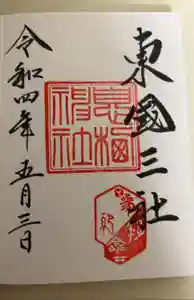 東國三社
息栖
神社
令和四年五月三日